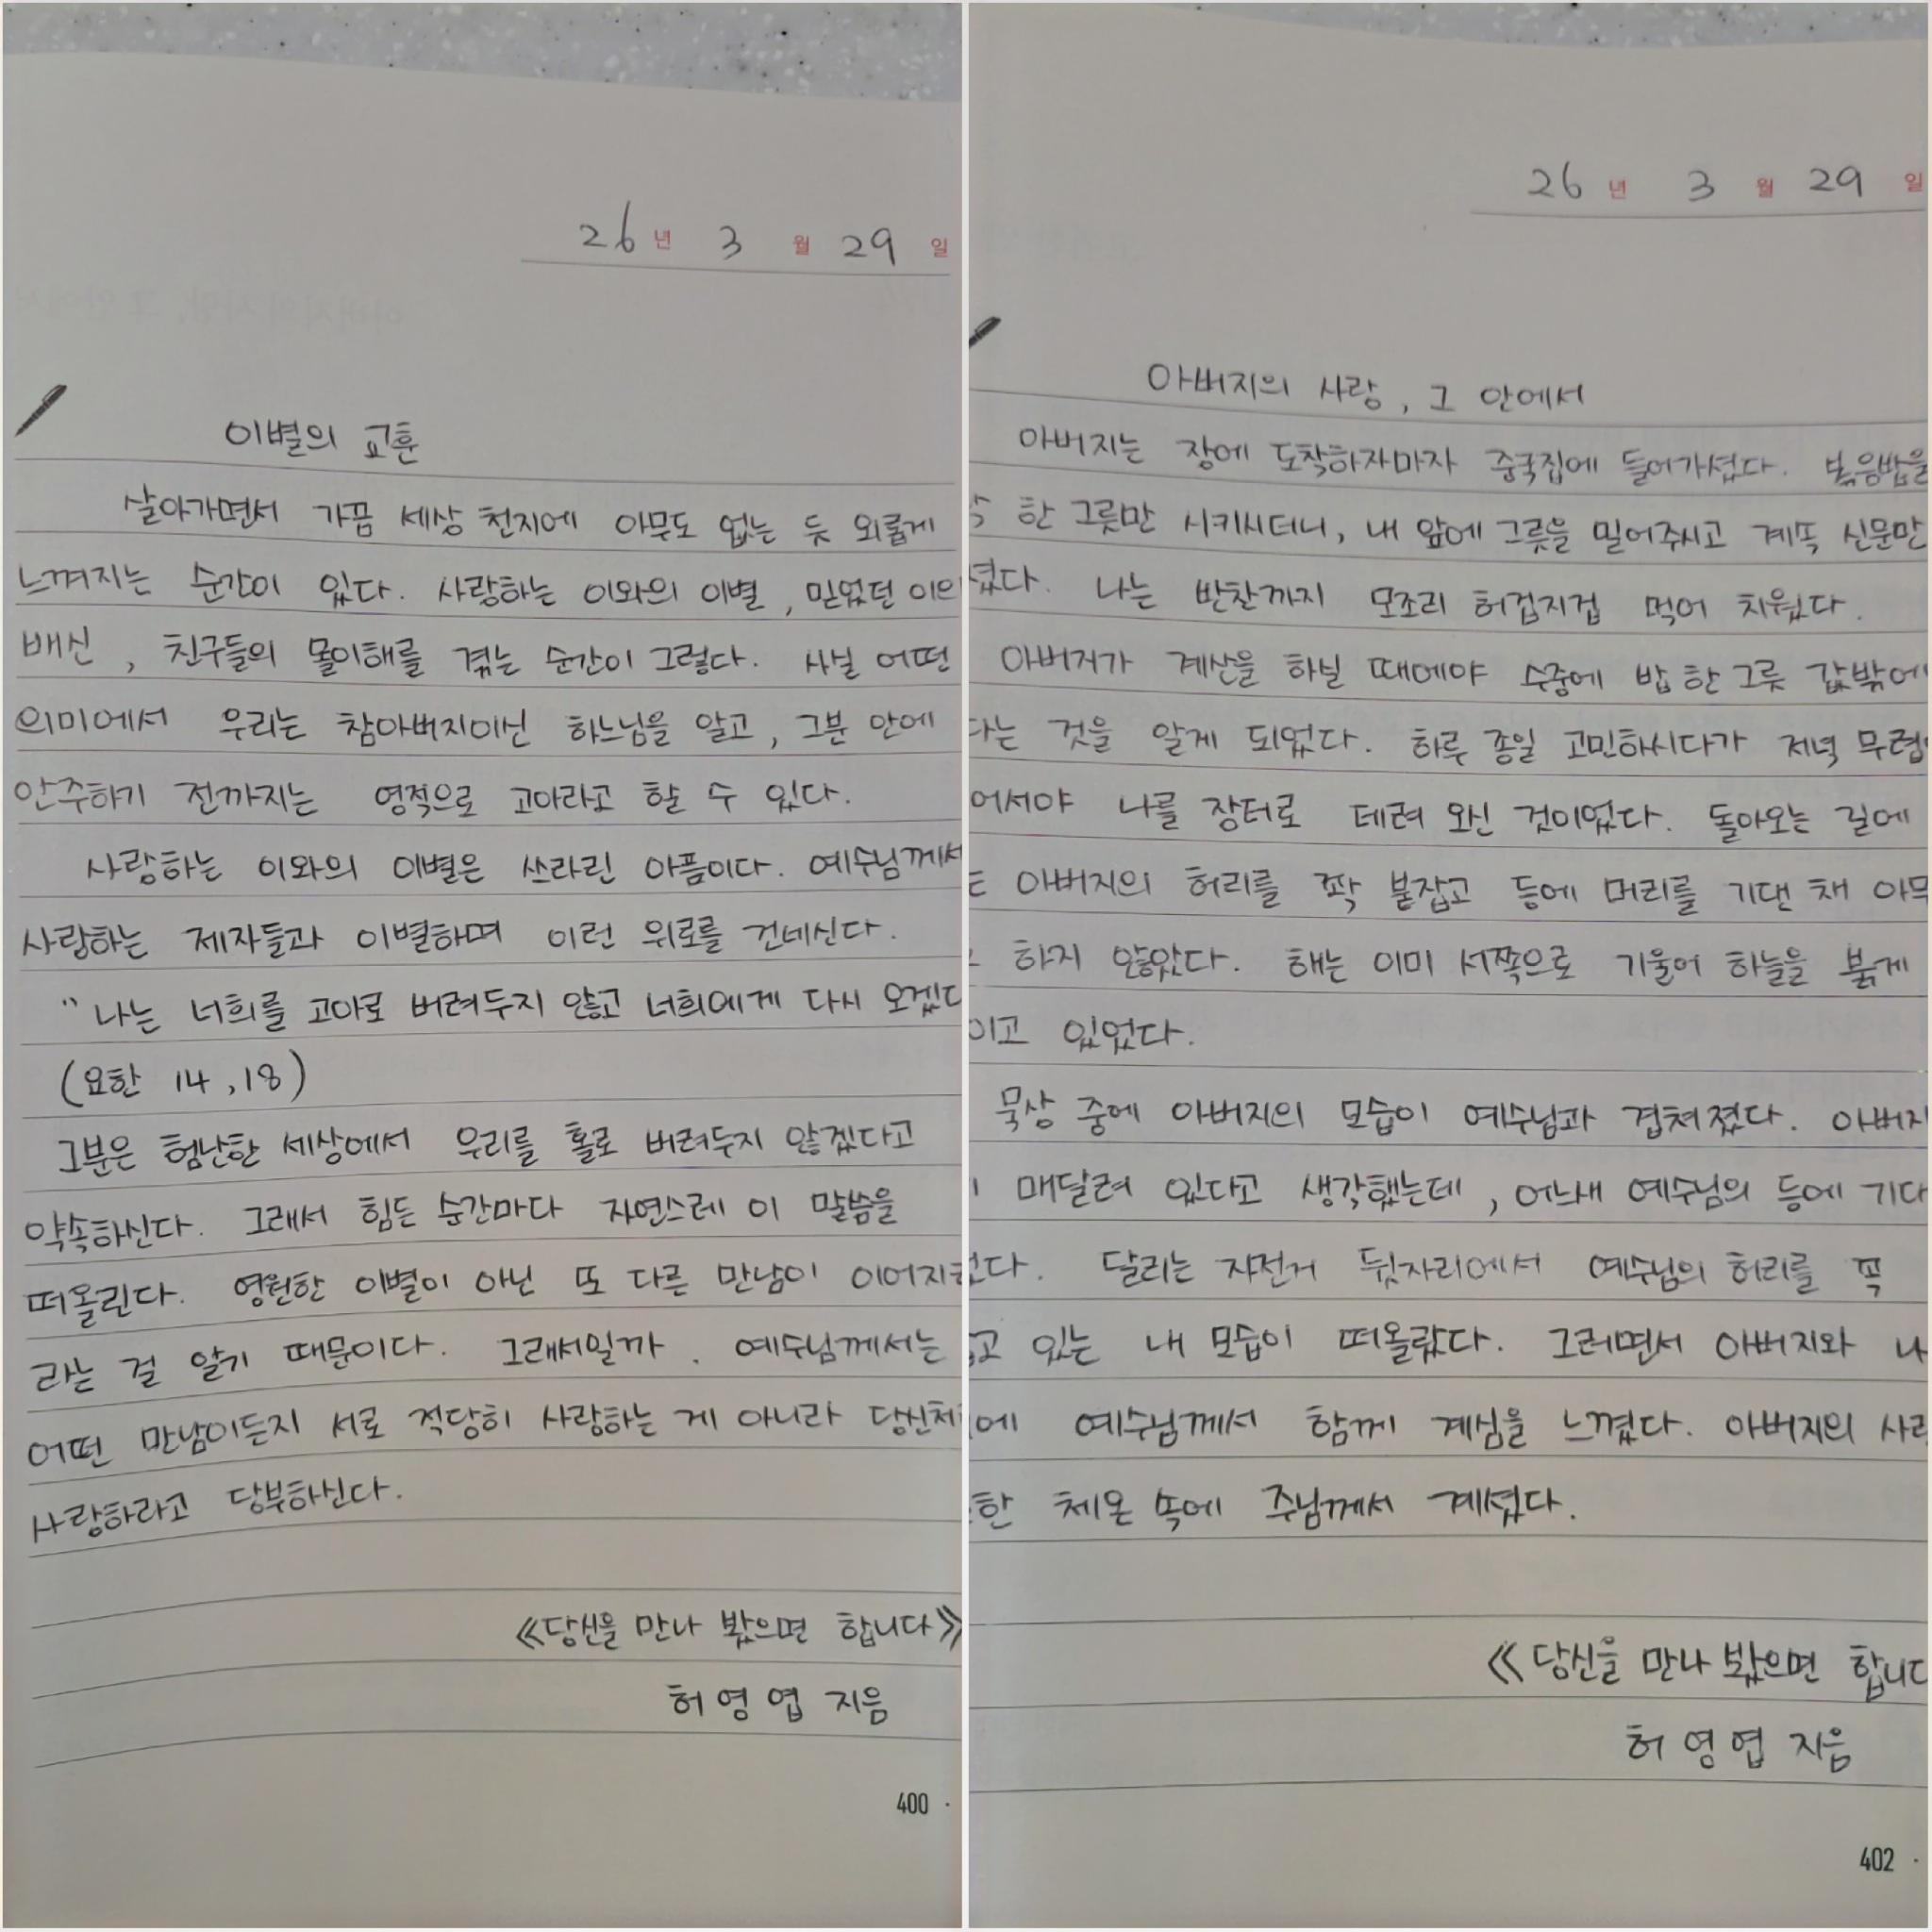 26 년 3 월 29 일
이별의 교훈
살아가면서 가끔 세상 천지에 아무도 없는 듯 외롭게
느껴지는 순간이 있다. 사랑하는 이와의 이별, 믿었던 이의
배신, 친구들의 몰이해를 겪는 순간이 그렇다. 사실 어떤
의미에서 우리는 참아버지이신 하느님을 알고, 그분 안에
안주하기 전까지는 영적으로 고아라고 할 수 있다.
사랑하는 이와의 이별은 쓰라린 아픔이다. 예수님께서
사랑하는 제자들과 이별하며 이런 위로를 건네신다.
"나는 너희를 고아로 버려두지 않고 너희에게 다시 오겠다
(요한 14,18)
그분은 험난한 세상에서 우리를 홀로 버려두지 않겠다고
약속하신다. 그래서 힘든 순간마다 자연스레 이 말씀을
떠올린다. 영원한 이별이 아닌 또 다른 만남이 이어지
라는 걸 알기 때문이다. 그래서일까. 예수님께서는
어떤 만남이든지 서로 적당히 사랑하는 게 아니라 당신처
사랑하라고 당부하신다.
《당신을 만나 봤으면 합니다》
허영엽 지음
400
26 년 3 월 29 일
아버지의 사랑, 그 안에서
아버지는 장에 도착하자마자 중국집에 들어가셨다. 볶음밥을
한 그릇만 시키시더니, 내 앞에 그릇을 밀어주시고 계속 신문만
셨다. 나는 반찬까지 모조리 허겁지겁 먹어 치웠다.
아버지가 계산을 하실 때에야 수중에 밥 한 그릇 값밖에
다는 것을 알게 되었다. 하루 종일 고민하시다가 저녁 무렵
어서야 나를 장터로 데려 오신 것이었다. 돌아오는 길에
아버지의 허리를 꽉 붙잡고 등에 머리를 기댄 채 아무
하지 않았다. 해는 이미 서쪽으로 기울어 하늘을 붉게
이고 있었다.
묵상 중에 아버지의 모습이 예수님과 겹쳐졌다. 아버지
매달려 있다고 생각했는데, 어느새 예수님의 등에 기대
었다. 달리는 자전거 뒷자리에서 예수님의 허리를 꼭
고 있는 내 모습이 떠올랐다. 그러면서 아버지와 나
에 예수님께서 함께 계심을 느꼈다. 아버지의 사랑
한 체온 속에 주님께서 계셨다.
《당신을 만나 봤으면 합니다
허영엽 지음
402